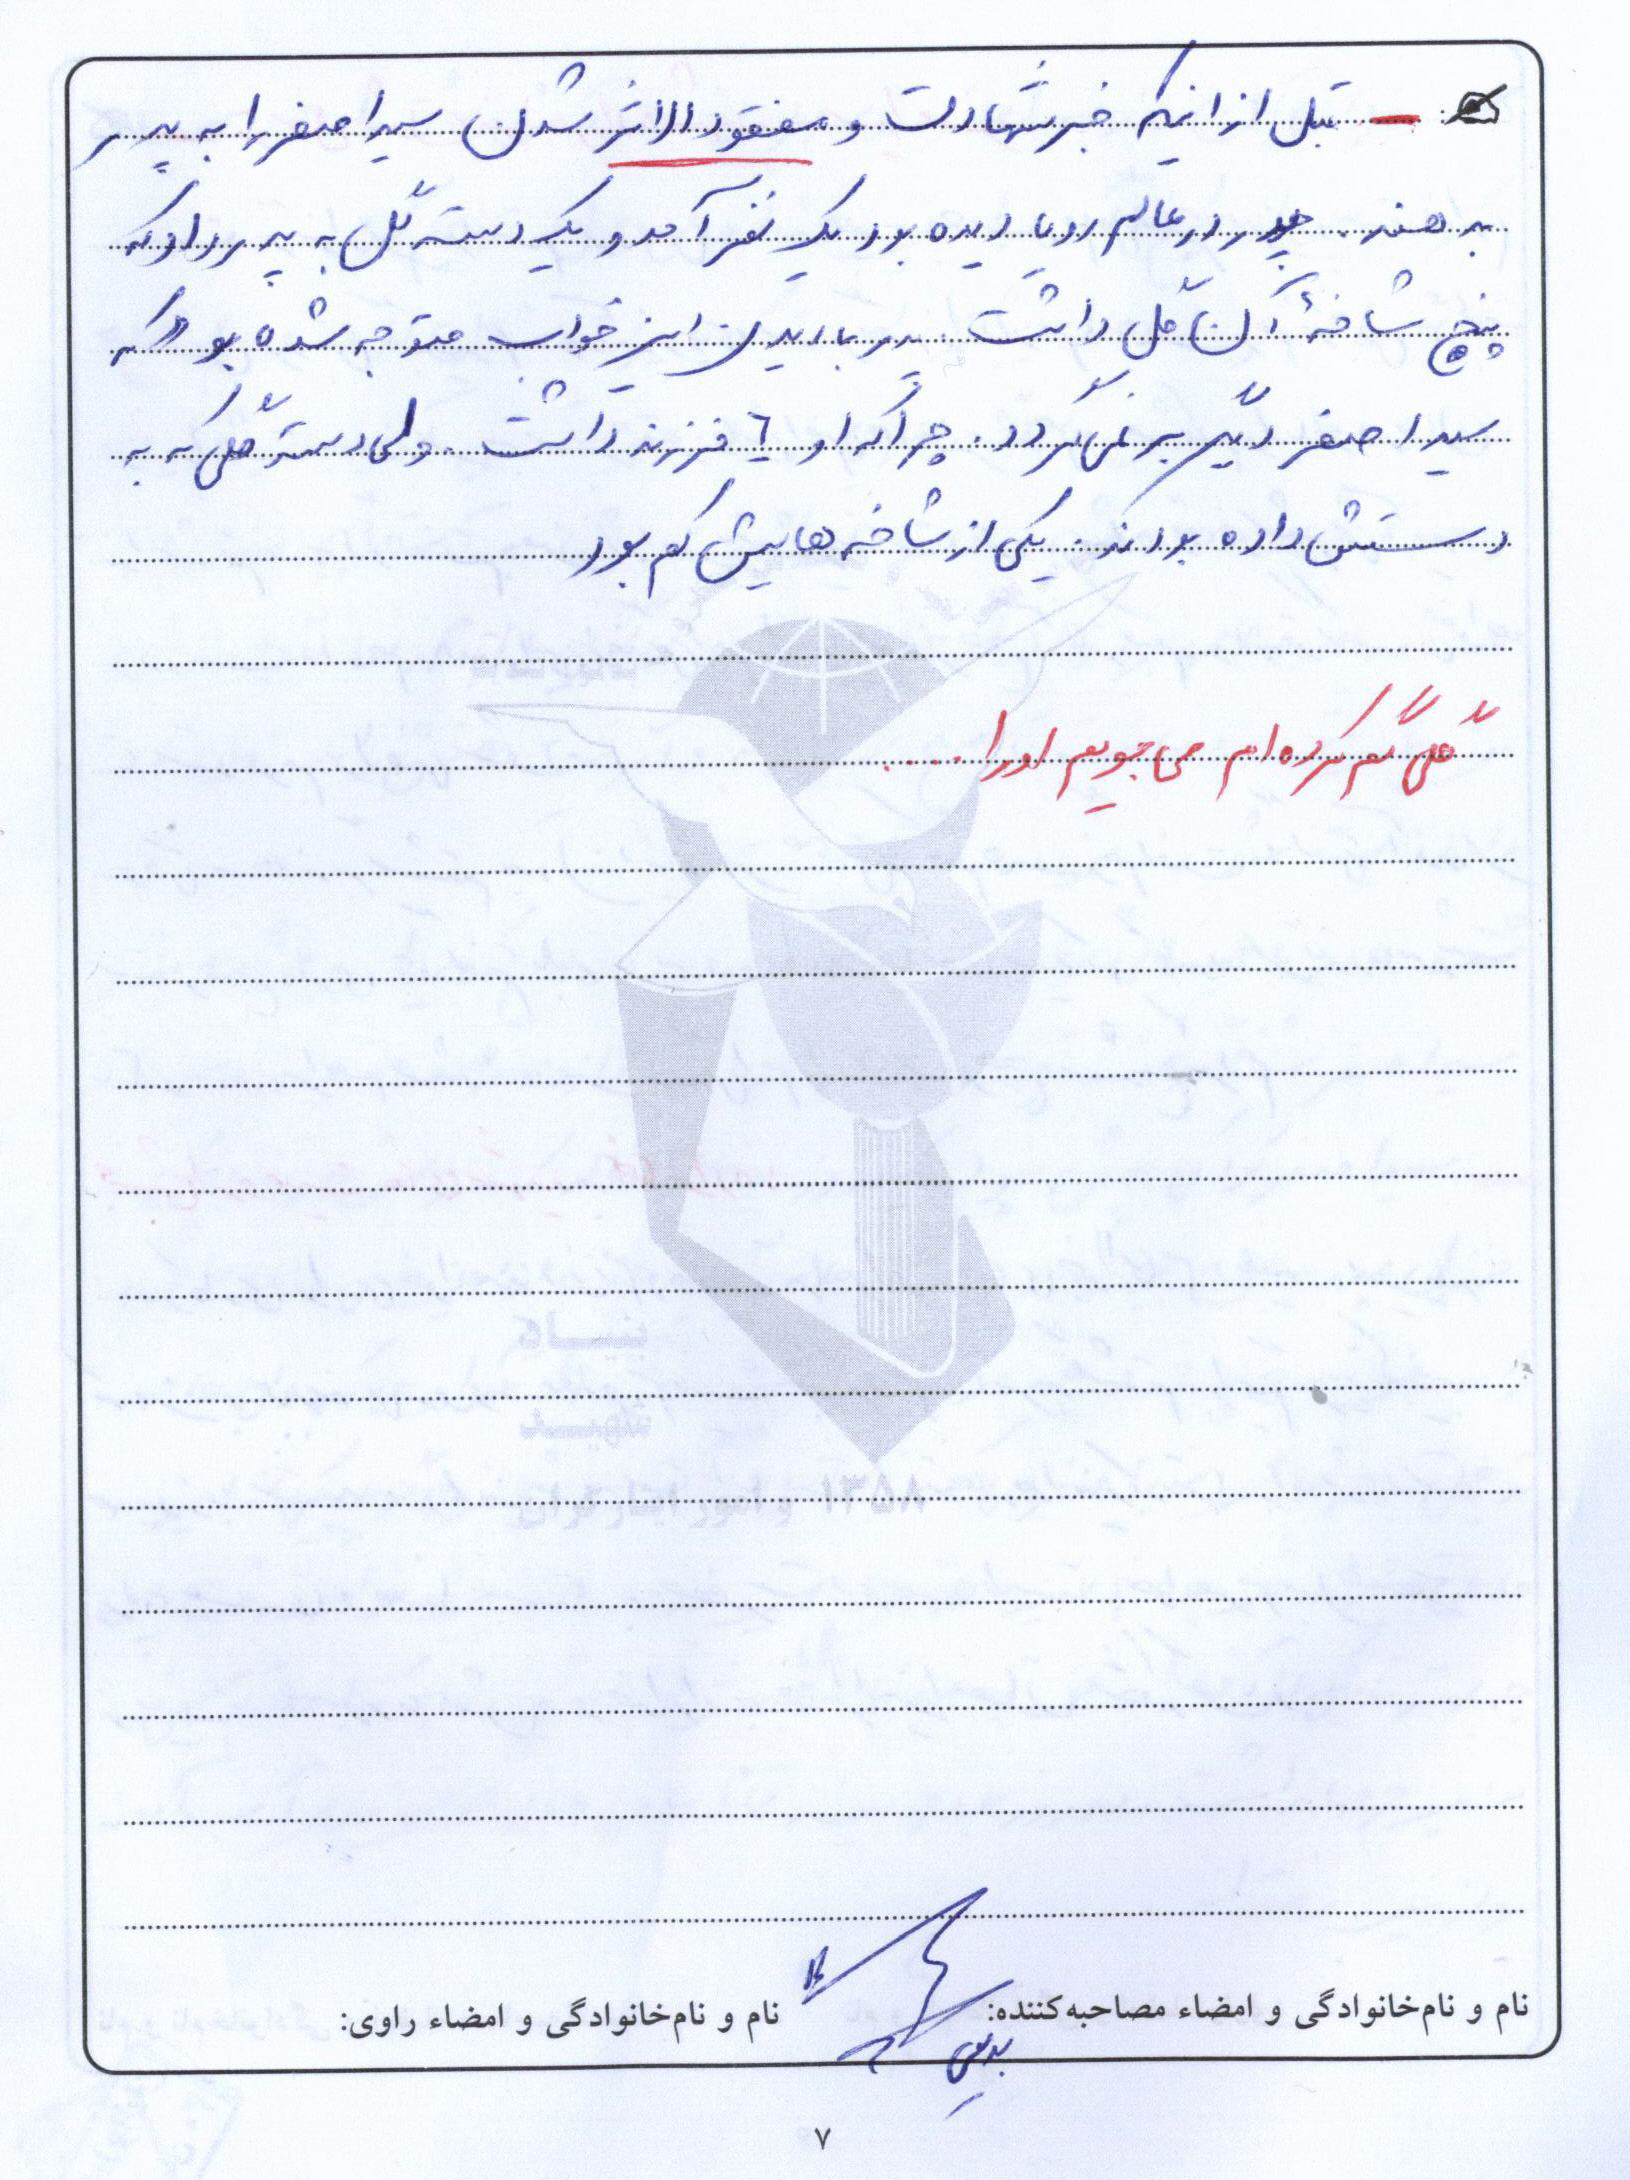 ـ قبل از اینکه خبر شهادت و مفقودالاثر شدن سید اصغر را به پدر
بدهند. پدر در عالم رویا دیده بود یک نفر آمد و یک دسته گل به پدر داد که
پنج شاخهٔ آن گل داشت. پدر با دیدن این خواب متوجه شده بود که
سید اصغر دیگر برنمی گردد. چرا که او ٦ فرزند داشت. ولی دسته گلی که به
دستش داده بودند. یکی از شاخه هایش کم بود
گلی گم کرده ام می جویم او را ....
بنیاد
شهید
و امور ایثارگران ۱۳۵۸
نام و نام‌خانوادگی و امضاء مصاحبه‌کننده:
بدیعی
نام و نام‌خانوادگی و امضاء راوی:
۷